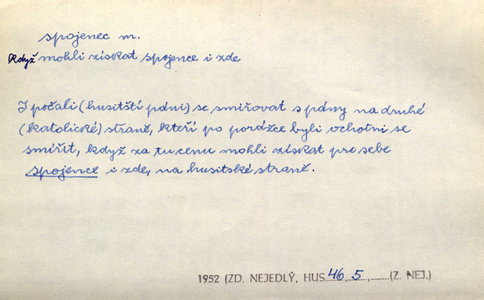 spojenec m.
Když mohli získat spojence i zde
I počali (husitští páni) se smiřovat s pány na druhé
(katolické) straně, kteří po porážce byli ochotni se
smířit, když za tu cenu mohli získat pro sebe
spojence i zde, na husitské straně.
1952 (ZD. NEJEDLÝ, HUS 46, 5, (Z. NEJ.)